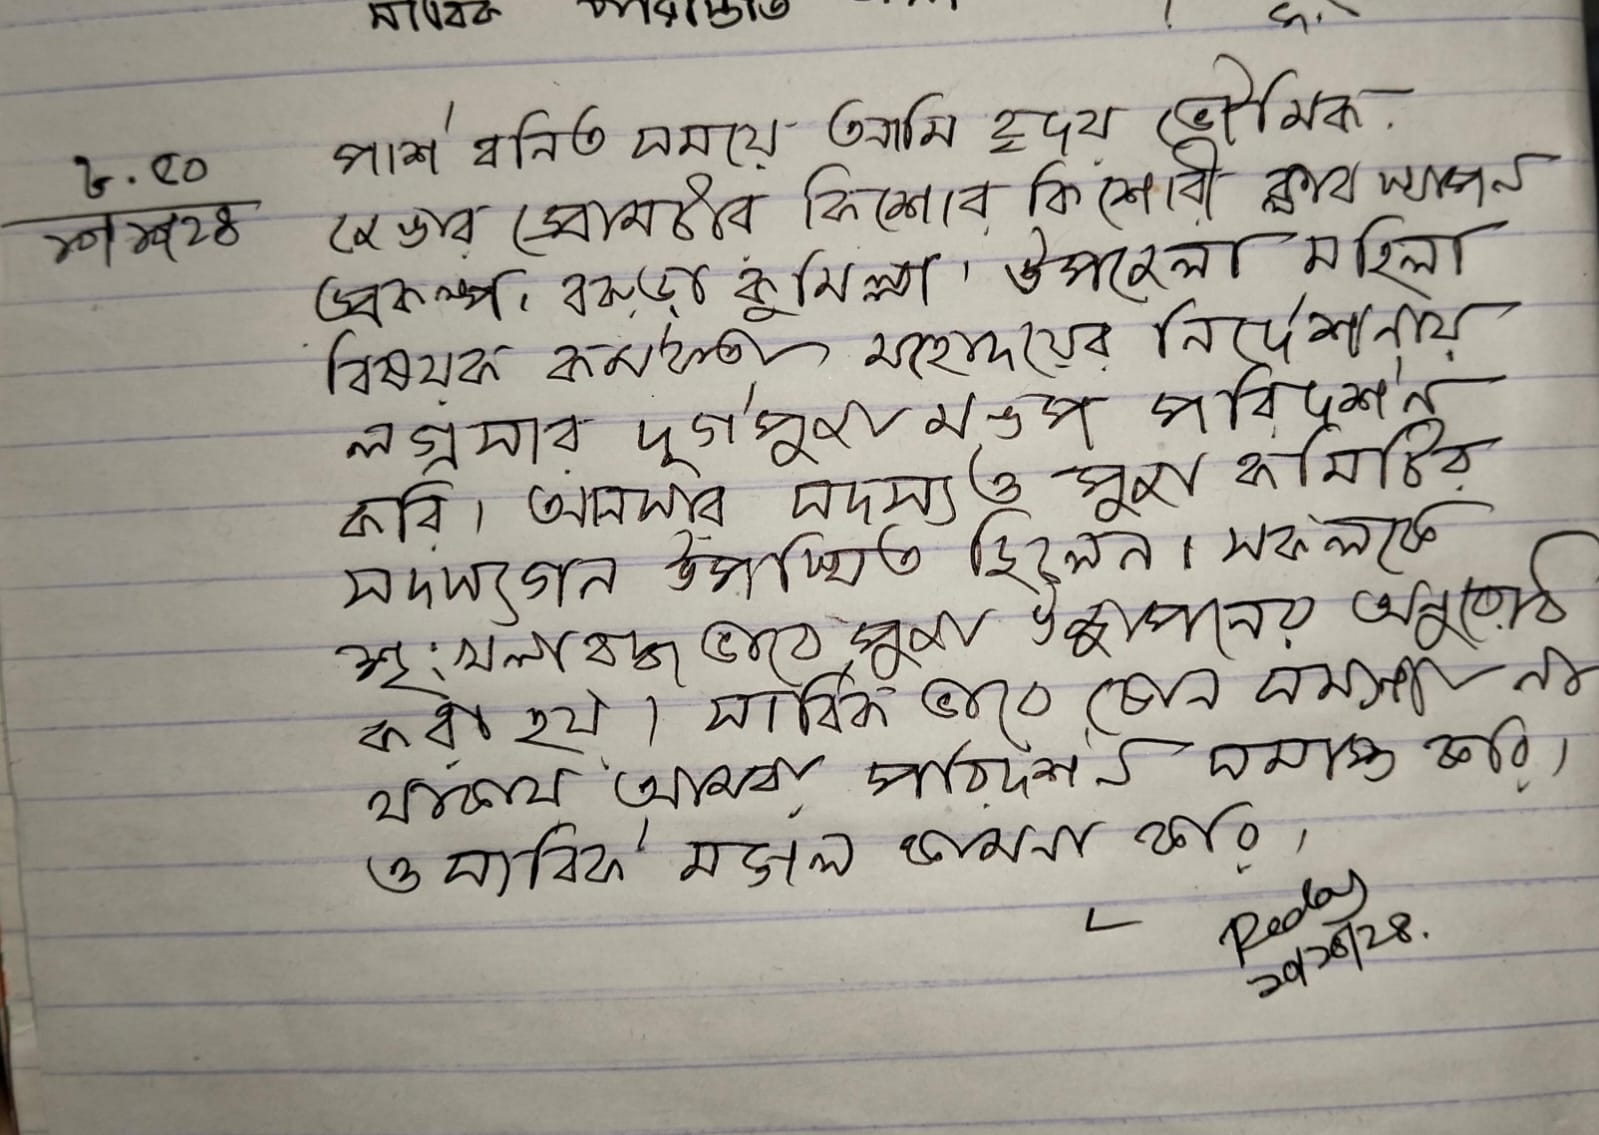 সার্বিক পরিস্থিতি
৮.৫০
পার্শ বর্নিত সময়ে আমি হৃদয় ভৌমিক
জেন্ডার প্রোমটার কিশোর কিশোরী ক্লাব স্থাপন
প্রকল্প, বরুড়া কুমিল্লা। উপজেলা মহিলা
বিষয়ক কর্মকর্তা মহোদয়ের নির্দেশনায়
লগ্নসার দূর্গাপুজা মন্ডপ পরিদর্শন
করি। আনসার সদস্য ও পুজা কমিটির
সদস্যগন উপস্থিত ছিলেন। সকলকে
শৃংখলাবদ্ধ ভাবে পুজা উদ্জাপনের অনুরোধ
করা হয়। সার্বিক ভাবে কোন সমস্যা না
থাকায় আমরা পরিদর্শন সমাপ্ত করি।
ও সার্বিক মঙ্গল কামনা করি।
Reday